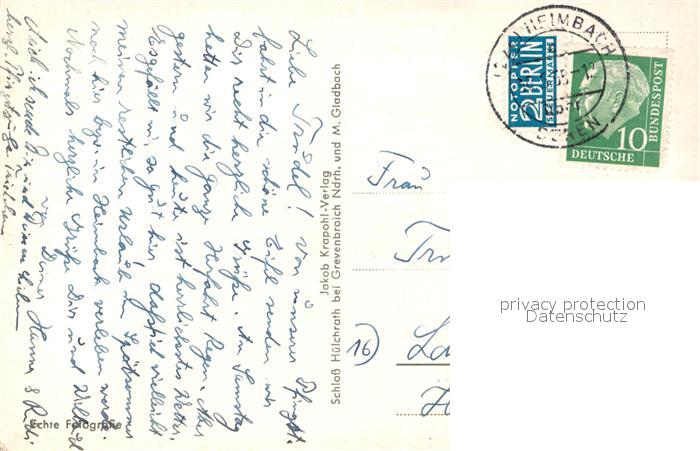 Liebe Trudel! Von unserer Pfingst-
fahrt in die schöne Eifel senden wir
Dir recht herzliche Grüße. Am Samstag
hatten wir die ganze Herfahrt Regen. Aber
gestern und heute ist herrlichstes Wetter.
Es gefällt mir so gut hier, daß ich vielleicht
meinen restlichen Urlaub im Spätsommer
noch hier bzw. in Heimbach verleben werde.
Nochmals herzliche Grüße Dir und
von Deiner Hanna & Rudi
Auch ich sende Dir und Deinen Lieben
herzl. Pfingstgrüße
Echte Fotografie
Jakob Krapohl-Verlag
Schloß Hülchrath bei Grevenbroich Ndrh. und M. Gladbach
NOTOPFER
2 BERLIN
STEUERMARKE
HEIMBACH
DÜREN
10
DEUTSCHE
BUNDESPOST
Frau
16)
privacy protection
Datenschutz